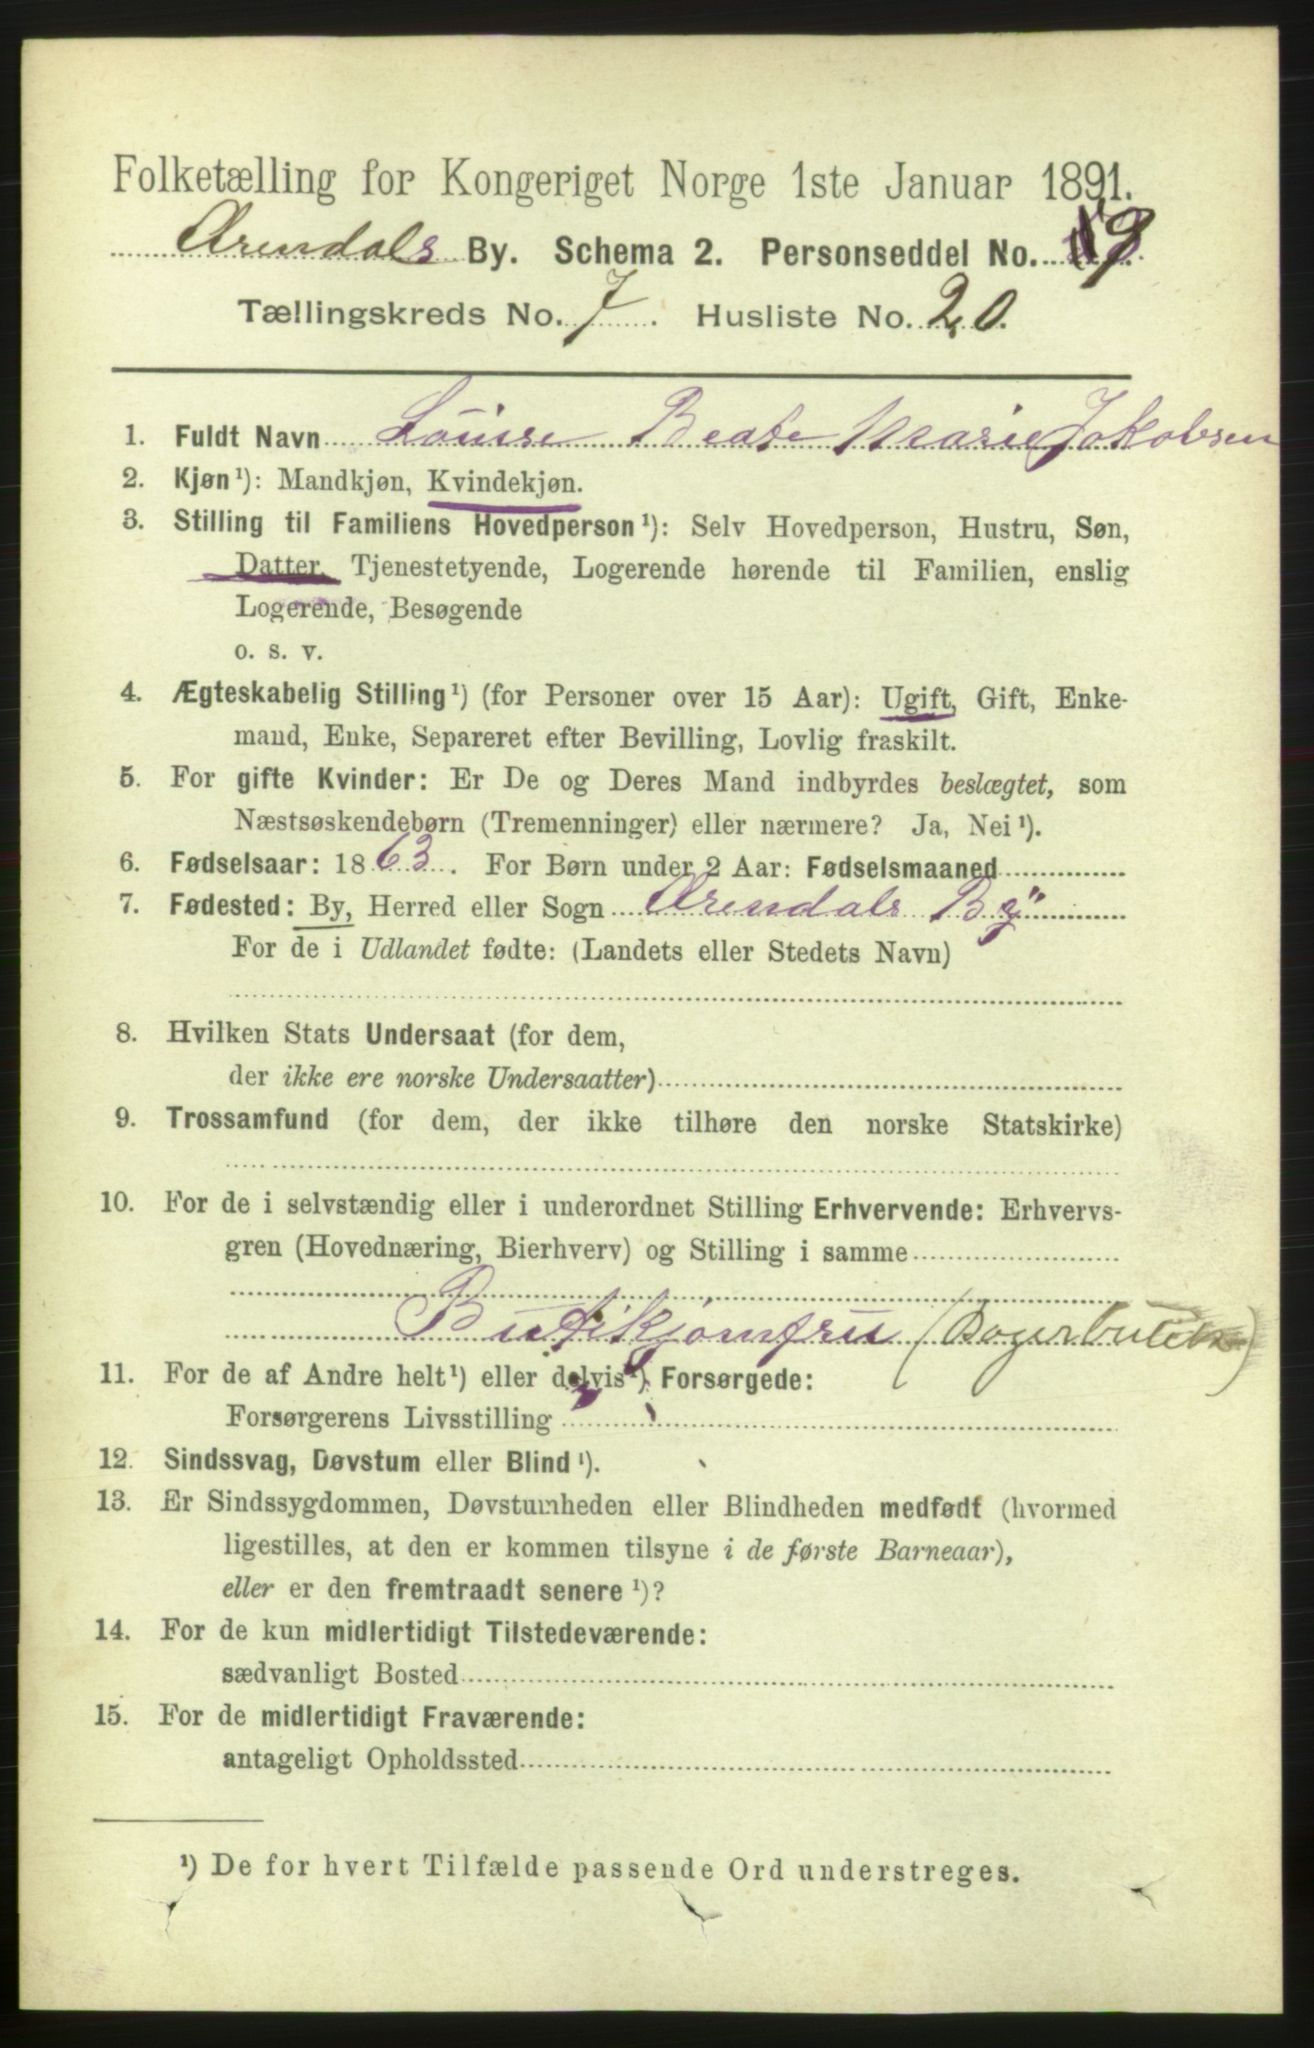 Folketælling for Kongeriget Norge 1ste Januar 1891.
Arendals By. Schema 2. Personseddel No. 19
Tællingskreds No. 7. Husliste No. 20.
1. Fuldt Navn Louise Beate Marie Jakobsen
2. Kjøn¹): Mandkjøn, Kvindekjøn.
3. Stilling til Familiens Hovedperson¹): Selv Hovedperson, Hustru, Søn,
Datter, Tjenestetyende, Logerende hørende til Familien, enslig
Logerende, Besøgende
o. s. v.
4. Ægteskabelig Stilling¹) (for Personer over 15 Aar): Ugift, Gift, Enke-
mand, Enke, Separeret efter Bevilling, Lovlig fraskilt.
5. For gifte Kvinder: Er De og Deres Mand indbyrdes beslægtet, som
Næstsøskendebørn (Tremenninger) eller nærmere? Ja, Nei¹).
6. Fødselsaar: 1863. For Børn under 2 Aar: Fødselsmaaned
7. Fødested: By, Herred eller Sogn Arendals By
For de i Udlandet fødte: (Landets eller Stedets Navn)
8. Hvilken Stats Undersaat (for dem,
der ikke ere norske Undersaatter)
9. Trossamfund (for dem, der ikke tilhøre den norske Statskirke)
10. For de i selvstændig eller i underordnet Stilling Erhvervende: Erhvervs-
gren (Hovednæring, Bierhverv) og Stilling i samme
Butikjomfru
11. For de af Andre helt¹) eller delvis¹) Forsørgede:
Forsørgerens Livsstilling
12. Sindssvag, Døvstum eller Blind¹).
13. Er Sindssygdommen, Døvstumheden eller Blindheden medfødt (hvormed
ligestilles, at den er kommen tilsyne i de første Barneaar),
eller er den fremtraadt senere¹)?
14. For de kun midlertidigt Tilstedeværende:
sædvanligt Bosted
15. For de midlertidigt Fraværende:
antageligt Opholdssted
¹) De for hvert Tilfælde passende Ord understreges.